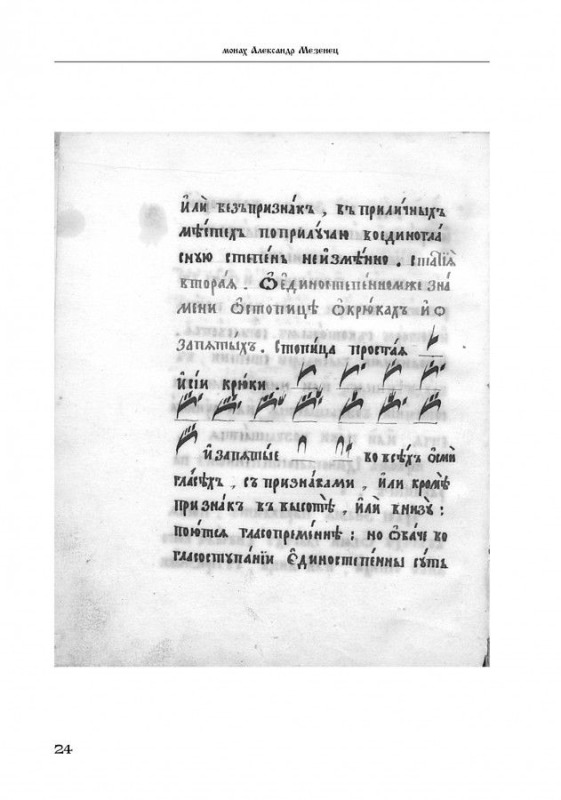 монах Александр Мезенец
и҆лѝ безъпризна́къ , въприли́чныхъ
мѣ́стехъ поприлꙋча́ю воединогла́
снꙋю сте́пень неи҆змѣ́нно . стаⷮїѧ̀
втора́ѧ . Ѽ є҆диносте́пенномъже зна́
мени ѡ҆стопи́цѣ ѡ҆крю́кахъ и҆ѡ҆
запѧ́тыхъ . Стопи́ца проста́ѧ
и҆сїѝ крю́ки
и҆запѧ́тые во всѣ́хъ ѻ҆смѝ
гла́сѣхъ , съ при́знаками , и҆лѝ кромѣ̀
при́знакъ въ высотѣ̀ , и҆лѝ внизꙋ̀ :
пою́тсѧ гласопремѣ́ннѣ : но ѻ҆ба́че во
гласостꙋпа́нїи є҆диносте́пенны сꙋ́ть
24